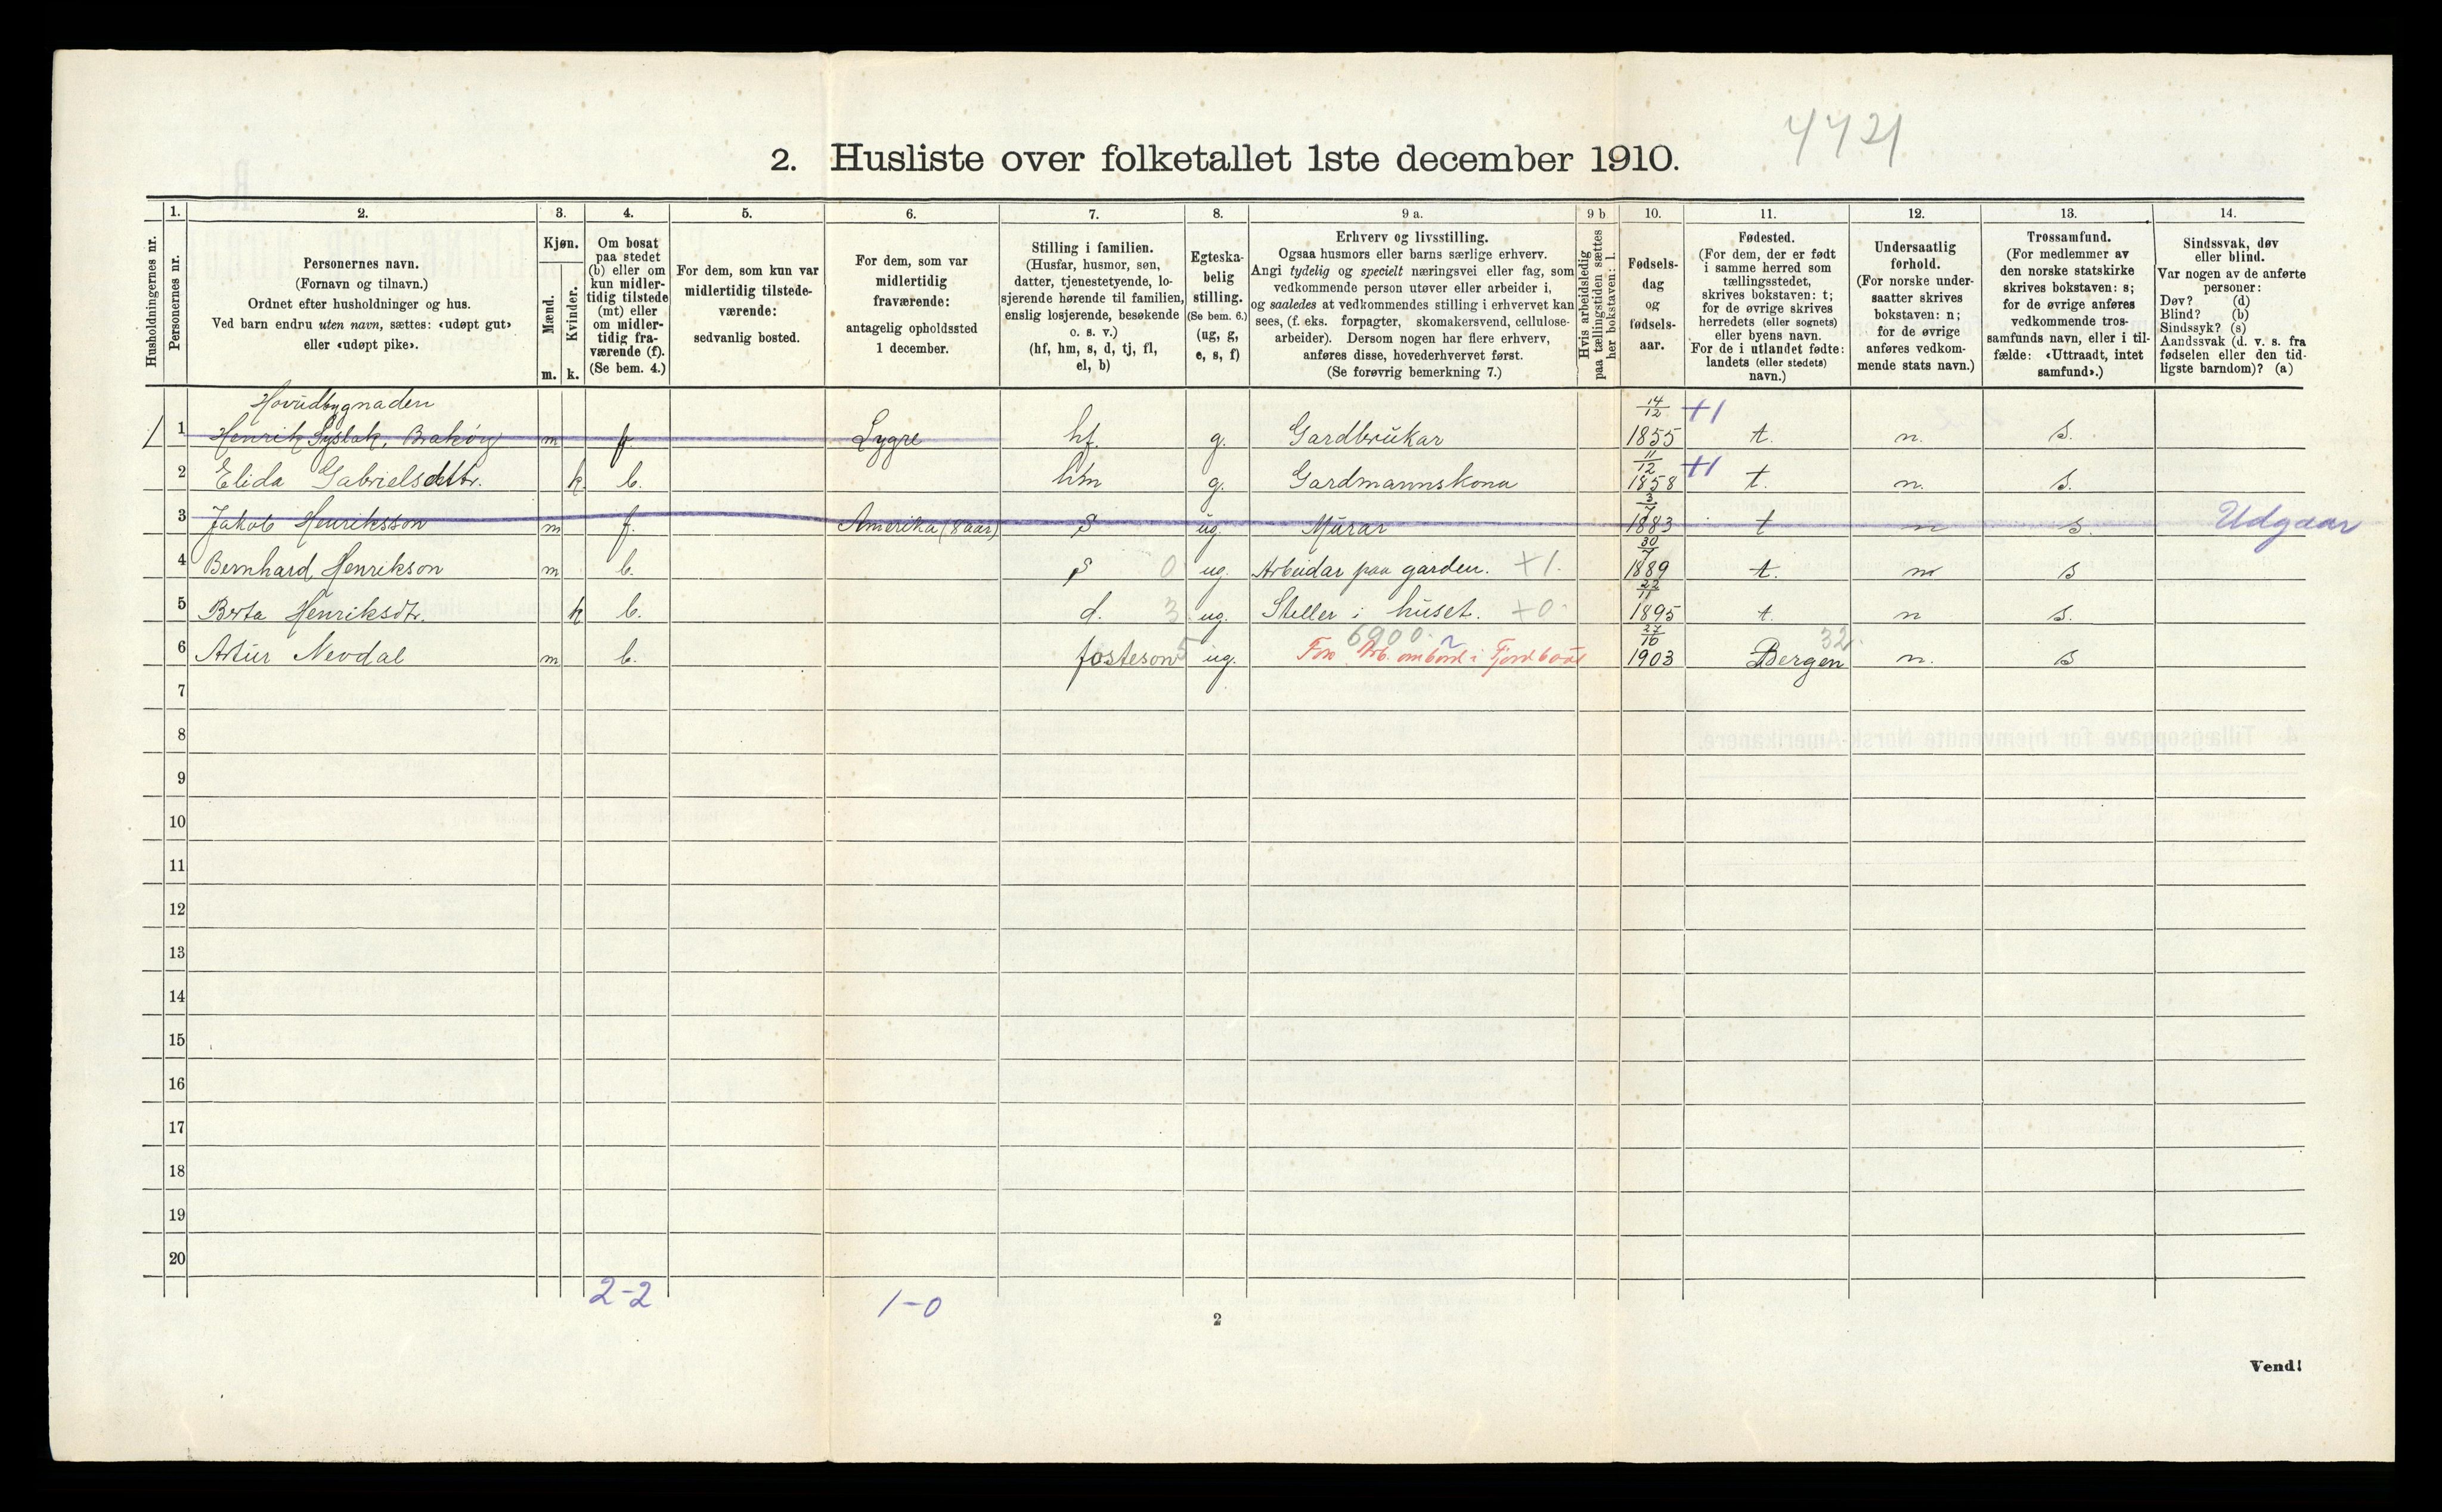 4421
2. Husliste over folketallet 1ste december 1910.
1. 2. 3. 4. 5. 6. 7. 8. 9 a. 9 b 10. 11. 12. 13. 14.
Husholdningernes nr.
Personernes nr.
Personernes navn.
(Fornavn og tilnavn.)
Ordnet efter husholdninger og hus.
Ved barn endnu uten navn, sættes: «udøpt gut»
eller «udøpt pike».
Kjøn.
Mænd.
Kvinder.
m. k.
Om bosat
paa stedet
(b) eller om
kun midler-
tidig tilstede
(mt) eller
om midler-
tidig fra-
værende (f).
(Se bem. 4.)
For dem, som kun var
midlertidig tilstede-
værende:
sedvanlig bosted.
For dem, som var
midlertidig
fraværende:
antagelig opholdssted
1 december.
Stilling i familien.
(Husfar, husmor, søn,
datter, tjenestetyende, lo-
sjerende hørende til familien,
enslig losjerende, besøkende
o. s. v.)
(hf, hm, s, d, tj, fl,
el, b)
Egteska-
belig
stilling.
(Se bem. 6.)
(ug, g,
e, s, f)
Erhverv og livsstilling.
Ogsaa husmors eller barns særlige erhverv.
Angi tydelig og specielt næringsvei eller fag, som
vedkommende person utøver eller arbeider i,
og saaledes at vedkommendes stilling i erhvervet kan
sees, (f. eks. forpagter, skomakersvend, cellulose-
arbeider). Dersom nogen har flere erhverv,
anføres disse, hovederhvervet først.
(Se forøvrig bemerkning 7.)
Hvis arbeidsledig
paa tællingstiden sættes
her bokstaven: l.
Fødsels-
dag
og
fødsels-
aar.
Fødested.
(For dem, der er født
i samme herred som
tællingsstedet,
skrives bokstaven: t;
for de øvrige skrives
herredets (eller sognets)
eller byens navn.
For de i utlandet fødte:
landets (eller stedets)
navn.)
Undersaatlig
forhold.
(For norske under-
saatter skrives
bokstaven: n;
for de øvrige
anføres vedkom-
mende stats navn.)
Trossamfund.
(For medlemmer av
den norske statskirke
skrives bokstaven: s;
for de øvrige anføres
vedkommende tros-
samfunds navn, eller i til-
fælde: «Uttraadt, intet
samfund».)
Sindssvak, døv
eller blind.
Var nogen av de anførte
personer:
Døv? (d)
Blind? (b)
Sindssyk? (s)
Aandssvak (d. v. s. fra
fødselen eller den tid-
ligste barndom)? (a)
Hovudbygnaden 14/12 +1
1 1 Henrik m f Lygre hf. g. Gardbrukar 1855 t. n. s.
11/12 +1
2 Elida Gabrielsdttr. k. b. hm g. Gardmannskona 1858 t. n. s.
3/7
3 Jakob Henriksson m f. Amerika (8 aar) s ug. Murar 1883 t n s. Udgaar
30/7
4 Bernhard Henrikson m b. s 0 ug. Arbeidar paa garden. +1. 1889 t. n s
22/11
5 Berta Henriksdtr. k b. d. 3 ug. Steller i huset. +0. 1895 t. n s.
6900. 27/10 32.
6 Artur Nevdal m b. fosteson 5 ug. Arb. ombord i Fjordbaat 1903 Bergen n. s
7
8
9
10
11
12
13
14
15
16
17
18
19
20
2-2 1-0
2
Vend!